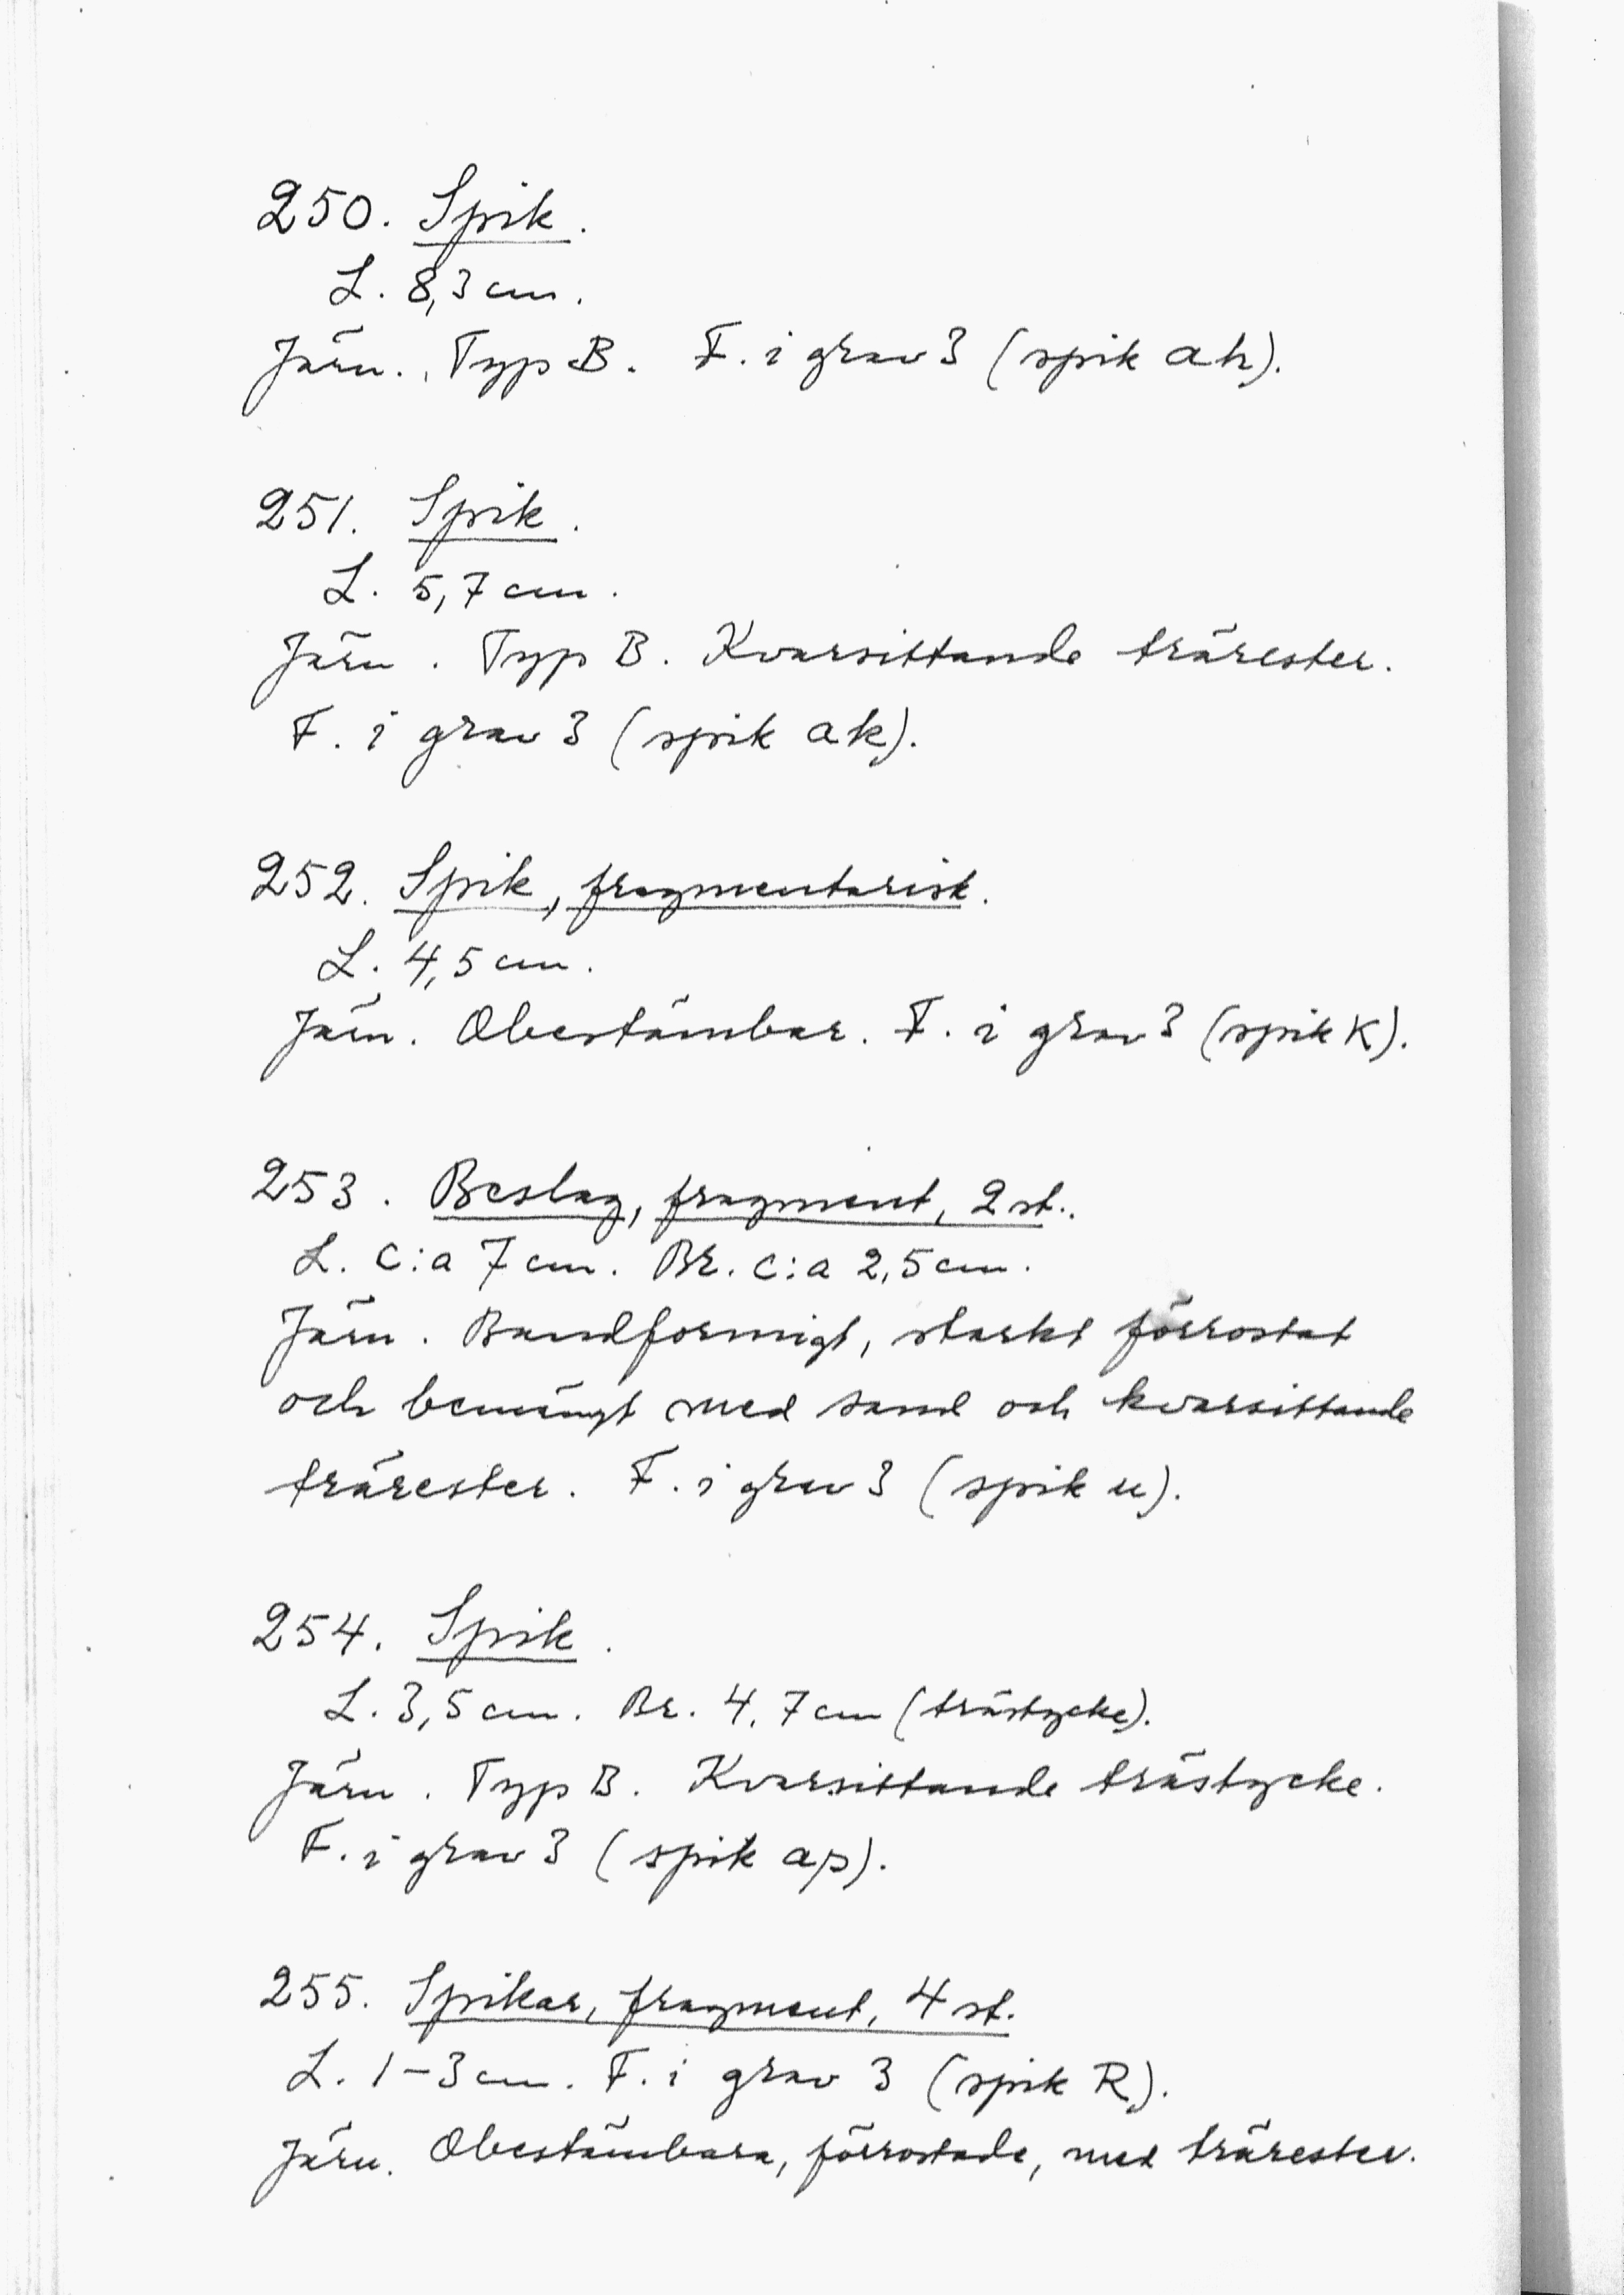 250. Spik.
L. 8,3 cm.
Järn. Typ B. F. i grav 3 (spik ah).
251. Spik.
L. 5,7 cm.
Järn. Typ B. Kvarsittande trärester.
F. i grav 3 (spik ak).
252. Spik, fragmentarisk.
L. 4,5 cm.
Järn. Obestämbar. F. i grav 3 (spik K).
253. Beslag, fragment, 2 st..
L. c:a 7 cm. Br. c:a 2,5 cm.
Järn. Bandformigt, starkt förrostat
och bemängt med sand och kvarsittande
trärester. F. i grav 3 (spik u).
254. Spik.
L. 3,5 cm. Br. 4,7 cm (trästycke).
Järn. Typ B. Kvarsittande trästycke.
F. i grav 3 (spik ap).
255. Spikar, fragment, 4 st.
L. 1-3 cm. F. i grav 3 (spik R).
Järn. Obestämbara, förrostade, med trärester.